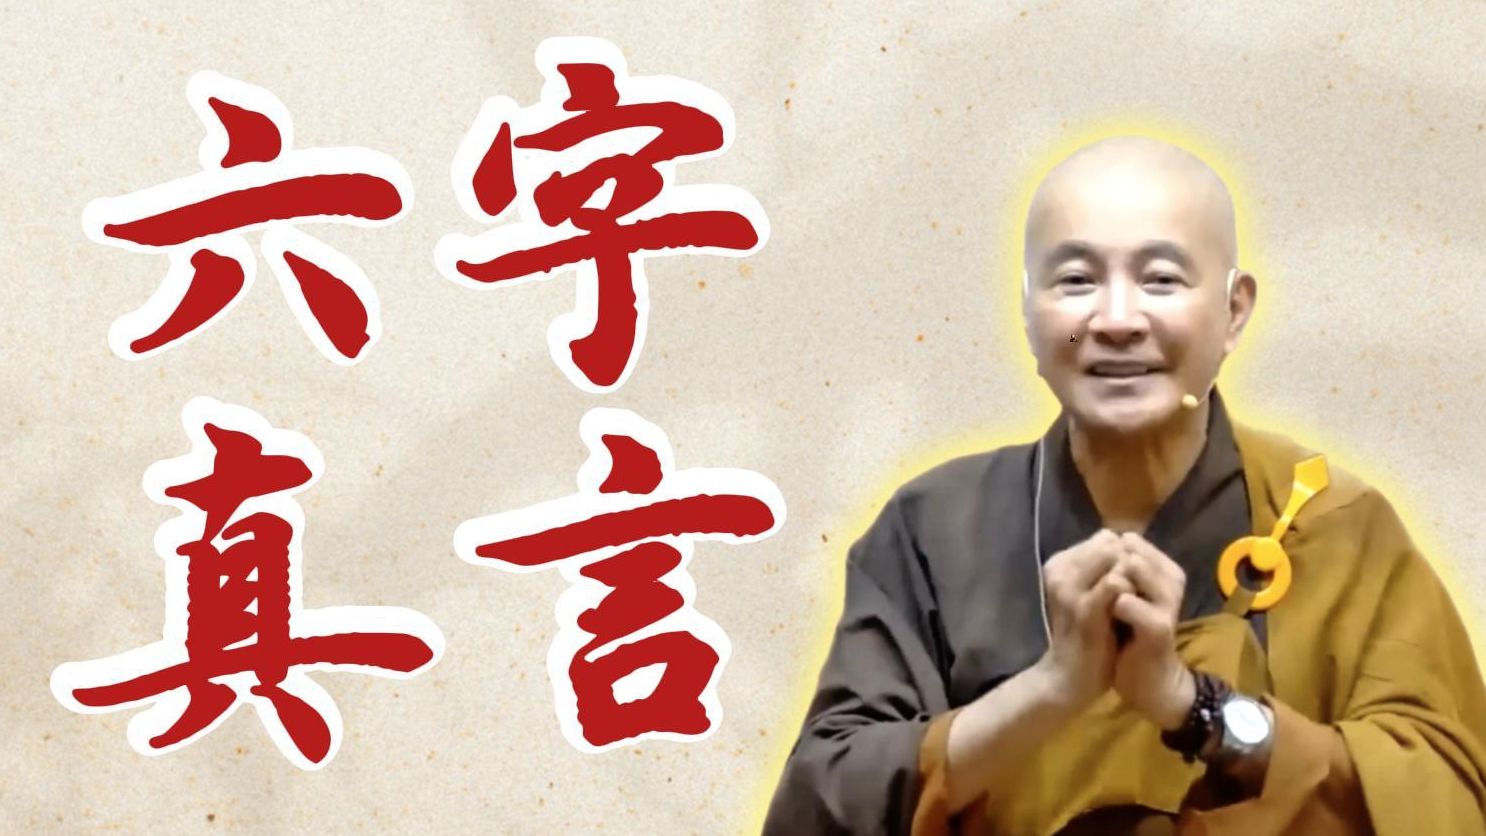 六字
真言